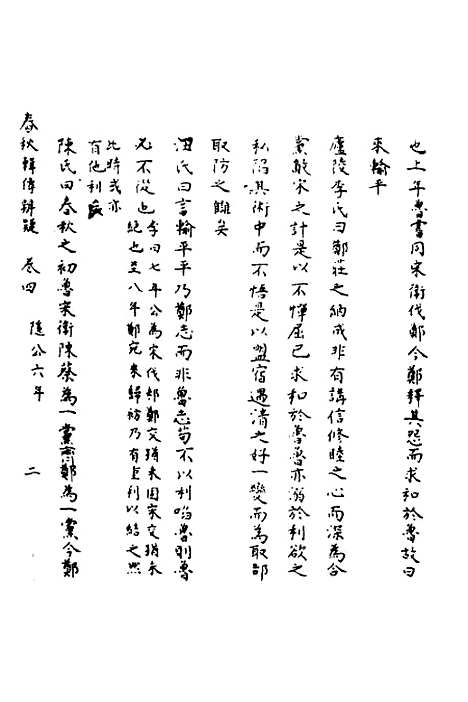 也上年魯嘗同宋衛伐鄭今鄭釋其怨而求和於魯故曰
來輸平
廬陵李氏曰鄭莊之納成非有講信修睦之心而深為合
黨敵宋之計是以不憚屈己求和於魯魯亦溺於利欲之
私陷其術中而不悟是以盟宿遇清之好一變而為取郜
取防之師矣
汪氏曰言輸平平乃鄭志而非魯志苟不以利啗魯則魯
必不從也
李曰七年公為宋伐邾鄭交猶未固宋交猶未
絕也至八年鄭宛來歸祊乃有重利以結之然
此時或亦
有他利
陳氏曰春秋之初魯宋衛陳蔡為一黨齊鄭為一黨今鄭
春秋輯傳辨疑 卷四 隱公六年 二